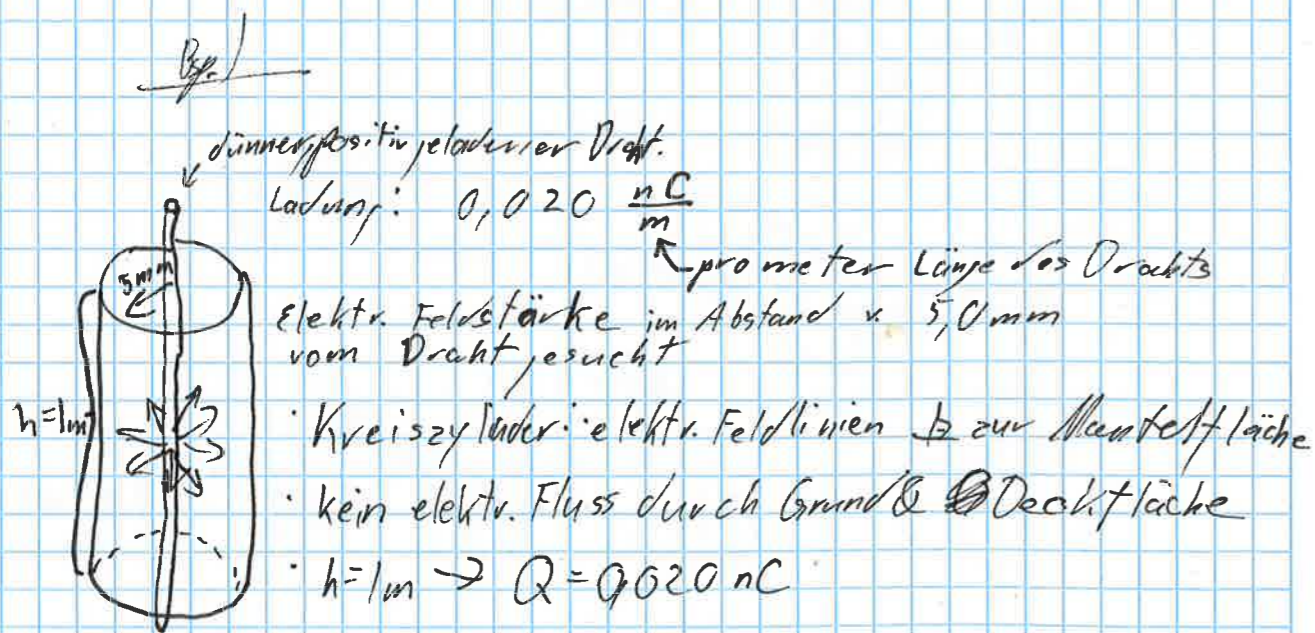 Bsp. 1
dünner, positiv geladener Draht.
Ladung: 0,020 nC/m
pro meter Länge des Drahts
5mm
Elektr. Feldstärke im Abstand v. 5,0 mm
vom Draht gesucht
h=1m
· Kreiszylinder: elektr. Feldlinien ⊥ zur Mantelfläche
· kein elektr. Fluss durch Grund & Deckfläche
· h=1m → Q=0,020 nC